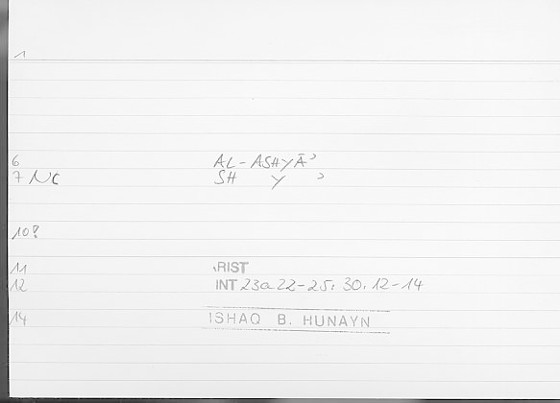 1
6 AL-ASHYĀʾ
7 NC SH Y ʾ
10?
11 RIST
12 INT 23a22-25; 30,12-14
14 ISHAQ B. HUNAYN